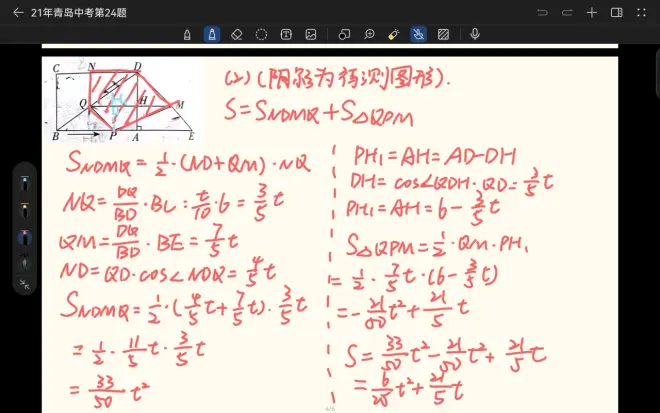 21年青岛中考第24题
C N D
Q H M
B P A E
(2)(阴影为预测图形).
S=S_NDMQ+S_△QPM
S_NDMQ=½·(ND+QM)·NQ
NQ=DQ/BD·BC:t/10·6=3/5t
QM=DQ/BD·BE=7/5t
ND=QD·cos∠NDQ=4/5t
S_NDMQ=½·(4/5t+7/5t)·3/5t
=½·11/5t·3/5t
=33/50t²
PH₁=AH=AD-DH
DH=cos∠QDH·QD=3/5t
PH₁=AH=6-3/5t
S_△QPM=½·QM·PH₁
=½·7/5t·(6-3/5t)
=-21/50t²+21/5t
S=33/50t²-21/50t²+21/5t
=6/25t²+21/5t